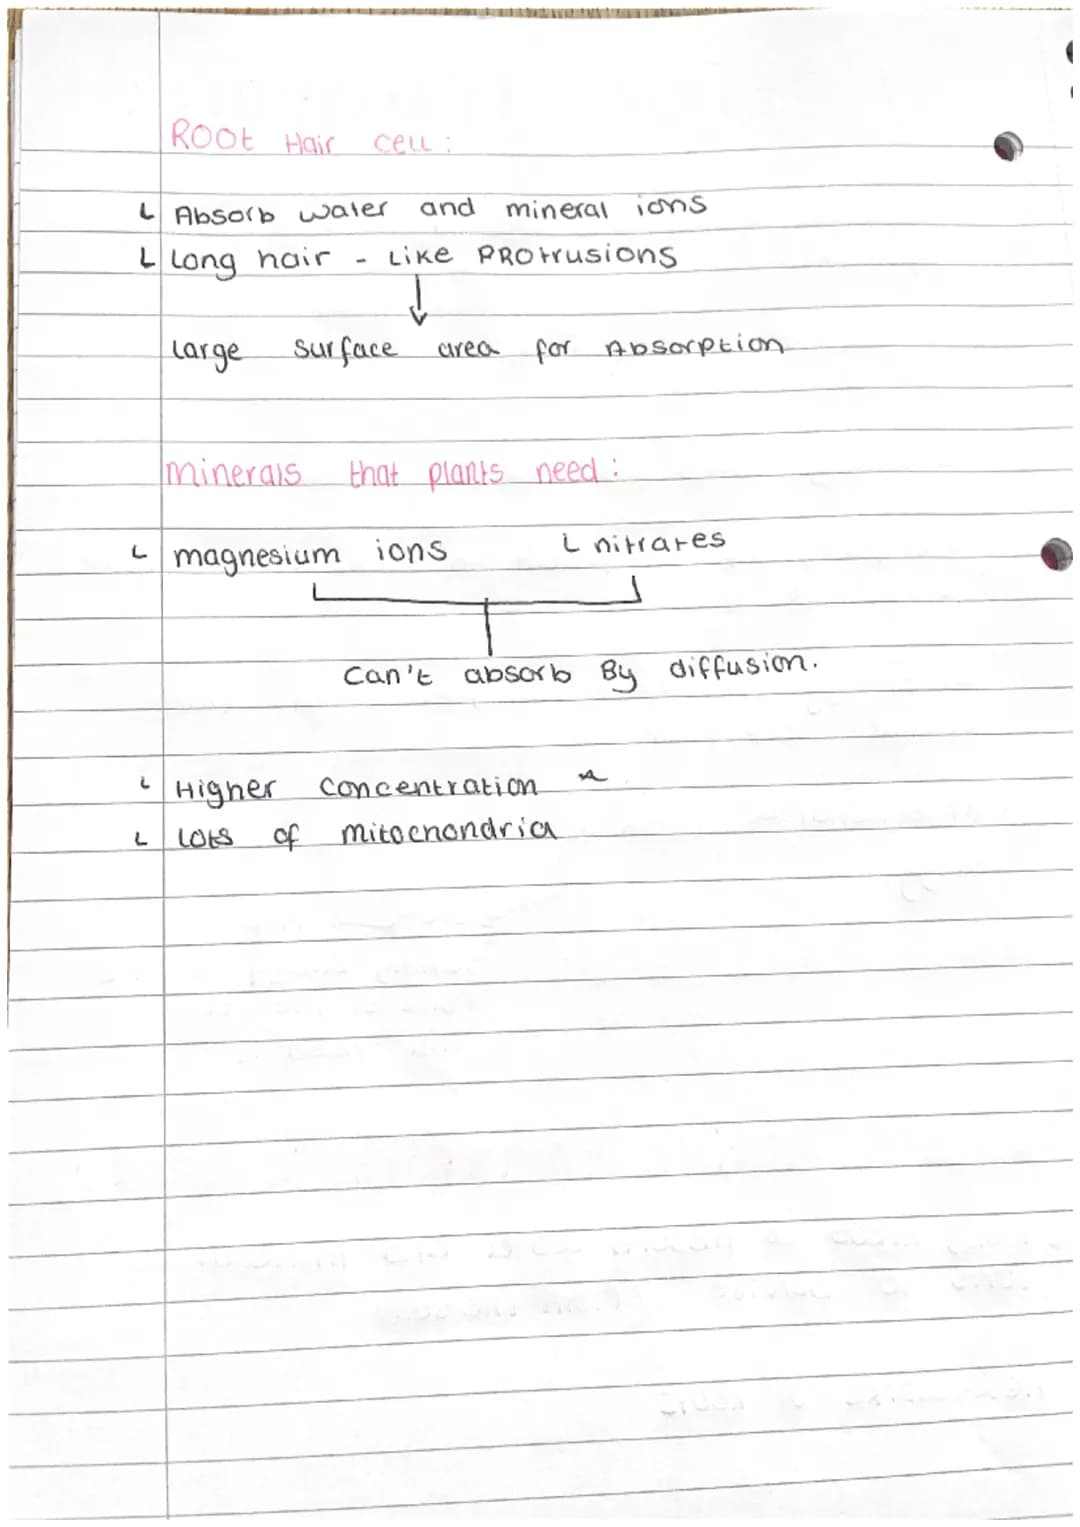 ROOt Hair cell:
Absorb water and mineral ions
Long hair - Like PROtrusions
Large Surface area for Absorption
minerals that plants need:
magnesium ions nitrates
Can't absorb By diffusion.
Higher Concentration
lots of mitochondria